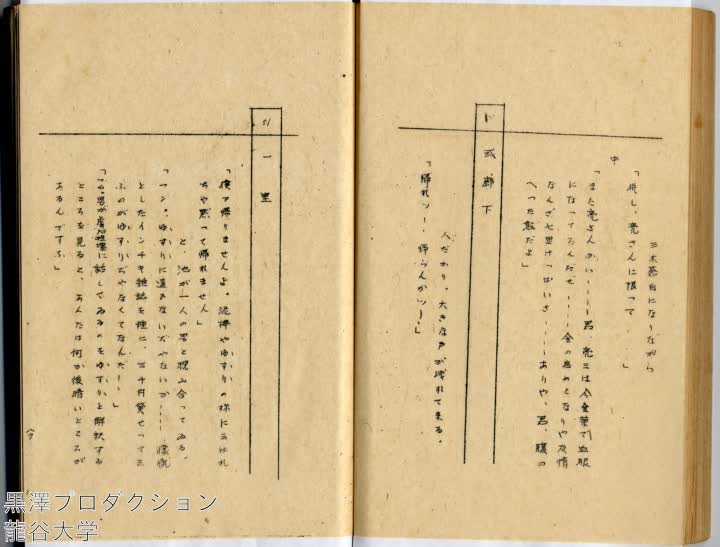 三木蒼白になりながら
「併し、亮さんに限って　　　」
中
「また亮さんかい……君、亮三は今金策で血眼
になってるんだぜ……金の為めとなりや友情
なんざ七里けっぱいさ……ありや、君、腹の
へった熊だよ」
或廊下
人だかり、大きな声が洩れて来る。
「帰れッ！　帰らんかッ！」
51　一室
「僕ア帰りませんよ。泥棒やゆすりの様に云はれ
ちや黙って帰れません」
と、池が一人の男と睨み合ってゐる。
「フン。ゆすりに違ひないぢやないか……
としたインチキ雑誌を種に、三千円貸せって云
ふのがゆすりぢやなくてなんだ！」
話してゐるのをゆすりと解釈する
ところを見ると、あんたは何か後暗いところが
あるんですな」
黒澤プロダクション
龍谷大学